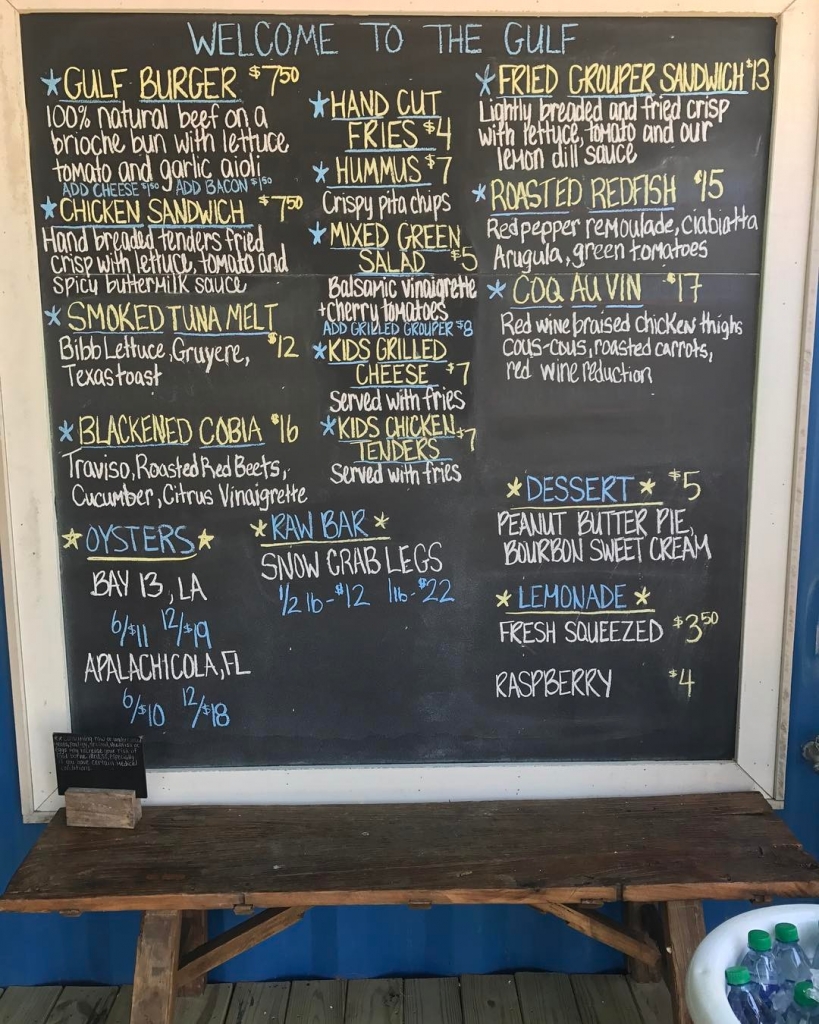 WELCOME TO THE GULF
*GULF BURGER $7.50
100% natural beef on a
brioche bun with lettuce
tomato and garlic aioli
ADD CHEESE $1.50 ADD BACON $1.50
*CHICKEN SANDWICH $7.50
Hand breaded tenders fried
crisp with lettuce, tomato and
spicy buttermilk sauce
*SMOKED TUNA MELT
Bibb Lettuce, Gruyere, $12
Texas toast
*BLACKENED COBIA $16
Traviso, Roasted Red Beets,
Cucumber, Citrus Vinaigrette
*OYSTERS*
BAY 13, LA
6/$11 12/$19
APALACHICOLA, FL
6/$10 12/$18
*HAND CUT
FRIES $4
*HUMMUS $7
Crispy pita chips
*MIXED GREEN
SALAD $5
Balsamic vinaigrette
+cherry tomatoes
ADD GRILLED GROUPER $8
*KIDS GRILLED
CHEESE $7
Served with fries
*KIDS CHICKEN
TENDERS $7
Served with fries
*RAW BAR*
SNOW CRAB LEGS
1/2 lb-$12 1lb-$22
*FRIED GROUPER SANDWICH $13
Lightly breaded and fried crisp
with lettuce, tomato and our
lemon dill sauce
*ROASTED REDFISH $15
Red pepper remoulade, Ciabiatta
Arugula, green tomatoes
*COQ AU VIN $17
Red wine braised chicken thighs
cous-cous, roasted carrots,
red wine reduction
*DESSERT* $5
PEANUT BUTTER PIE,
BOURBON SWEET CREAM
*LEMONADE*
FRESH SQUEEZED $3.50
RASPBERRY $4